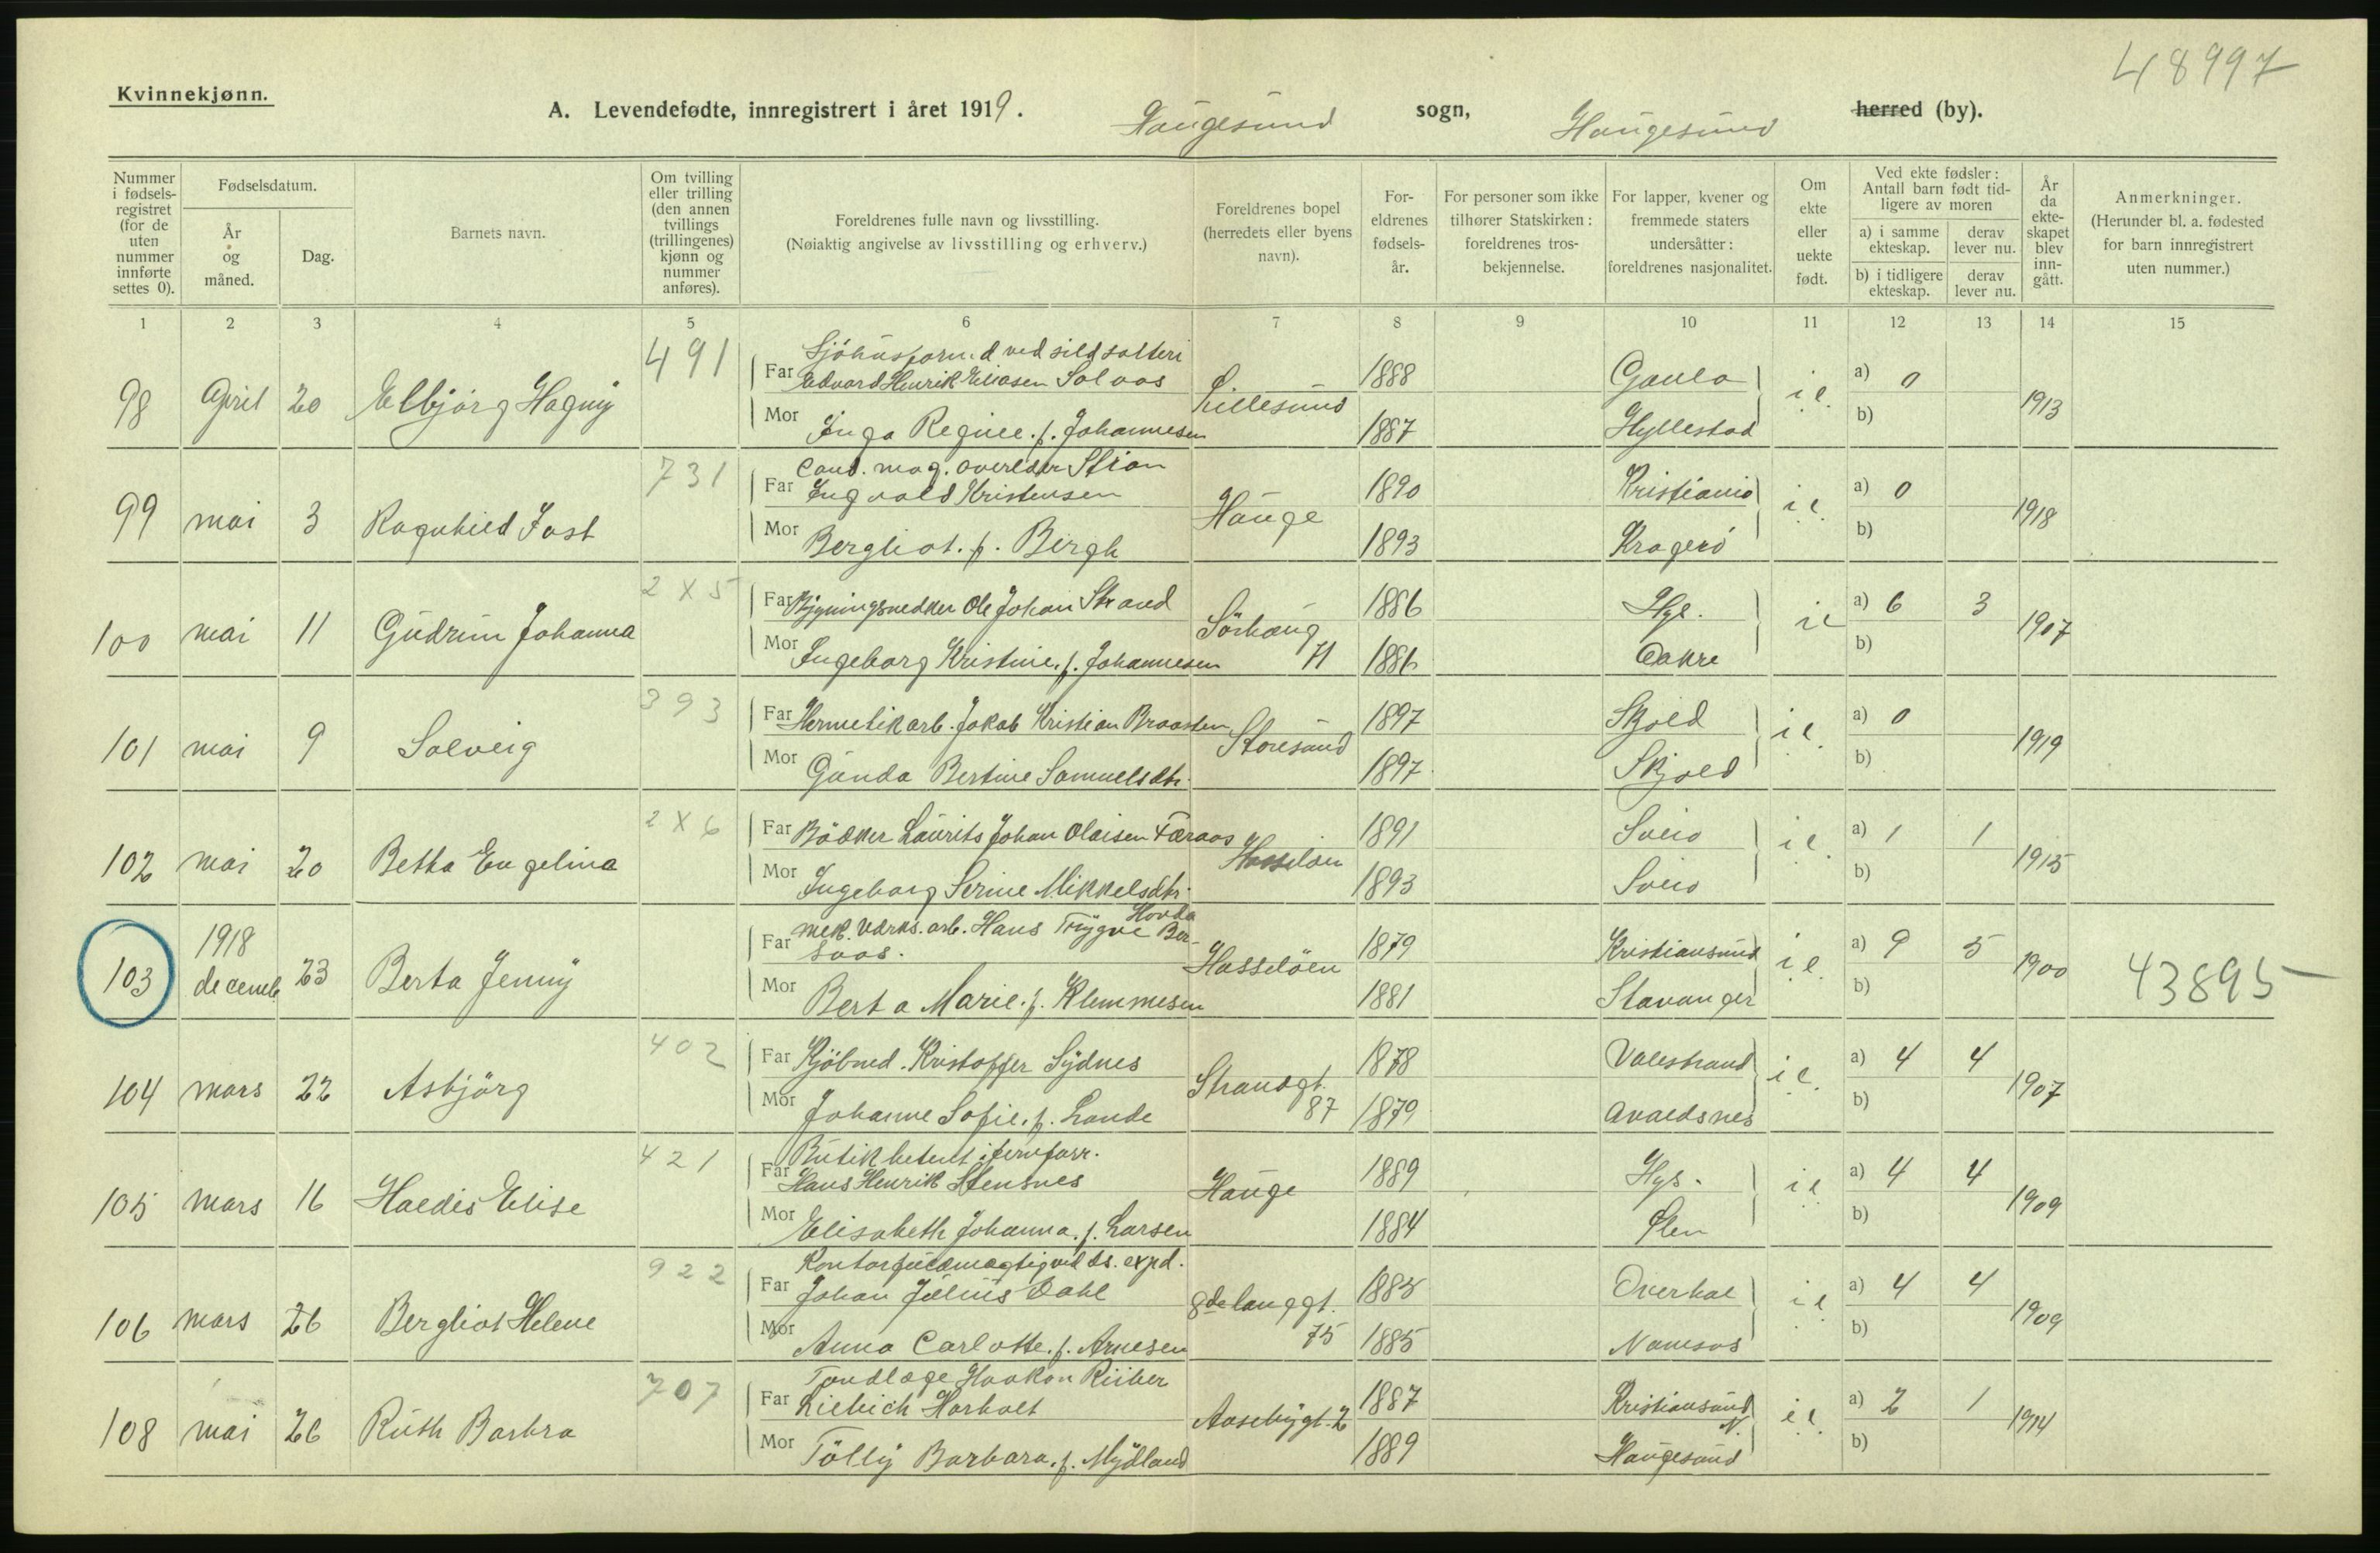 48997
Kvinnekjønn.
A. Levendefødte, innregistrert i året 1919. Haugesund sogn, Haugesund herred (by).
Nummer i fødselsregistret (for de uten nummer innførte settes 0).
Fødselsdatum.
År og måned.
Dag.
Barnets navn.
Om tvilling eller trilling (den annen tvillings (trillingenes) kjønn og nummer anføres).
Foreldrenes fulle navn og livsstilling.
(Nøiaktig angivelse av livsstilling og erhverv.)
Foreldrenes bopel (herredets eller byens navn).
Foreldrenes fødselsår.
For personer som ikke tilhører Statskirken: foreldrenes trosbekjennelse.
For lapper, kvener og fremmede staters undersåtter: foreldrenes nasjonalitet.
Om ekte eller uekte født.
Ved ekte fødsler: Antall barn født tidligere av moren
a) i samme ekteskap.
derav lever nu.
b) i tidligere ekteskap.
derav lever nu.
År da ekteskapet blev inngått.
Anmerkninger.
(Herunder bl. a. fødested for barn innregistrert uten nummer.)
1 2 3 4 5 6 7 8 9 10 11 12 13 14 15
491 Sjöhusform.d ved sildsalteri
98 April 20 Elbjörg Hagny Far Edvard Henrik Eliasen Solaas Lillesund 1888 Gaula a) 0 1913
Mor Inga Regine. f. Johannesen 1887 Hyllestad b)
731 Cand. mag. overlder Stian
99 mai 3 Ragnhild Fast Far Ingvald Kristensen Hauge 1890 Kristiania a) 0 1918
Mor Bergliot. f. Bergh 1893 Kragerö b)
2X5
100 mai 11 Gudrun Johanna Far Bygningssnedker Ole Johan Strand Sörhaug 71 1886 a) 6 3 1907
Mor Ingeborg Kristine. f. Johannesen 1886 Aakre b)
393
101 mai 9 Solveig Far Hermetikarb. Jakob Kristian Braasten Storesund 1897 Skjold a) 0 1919
Mor Gunda Bertine Samuelsdtr. 1897 Skjold b)
2X6
102 mai 20 Betha Engelina Far Bödker Laurits Johan Olaisen Færaas Hasselöen 1891 Sveio a) 1 1 1915
Mor Ingeborg Serine Mikkelsdtr. 1893 Sveio b)
1918 Hovda
mek. værks. arb. Hans Trygve Ber-
103 decemb. 23 Berta Jenny Far saas. Hasselöen 1879 Kristiansund a) 9 5 1900 43895
Mor Berta Marie. f. Klemmesen 1881 Stavanger b)
402
104 mars 22 Asbjörg Far Kjöbmd. Kristoffer Sydnes Strandgt. 87 1878 Valestrand a) 4 4 1907
Mor Johanne Sofie. f. Lande 1879 Avaldsnes b)
421 Butikbetent i
105 mars 16 Haldis Elise Far Hans Henrik Stensnes Hauge 1889 a) 4 4 1909
Mor Elisabeth Johanna. f. Larsen 1884 Ølen b)
922 Kontorfuldmægtig ved ds. expd.
106 mars 26 Bergliot Helene Far Johan Julius Dahl gdelanggt. 75 1885 Overhal a) 4 4 1909
Mor Anna Carlotte. f. Arnesen 1885 Namsos b)
707 Tandlæge Haakon Riiber
108 mai 26 Ruth Barbra Far Liebich Harholt Aasebygt. 2 1887 Kristiansund N. a) 2 1 1914
Mor Tölly Barbara. f. Mydland 1889 Haugesund b)